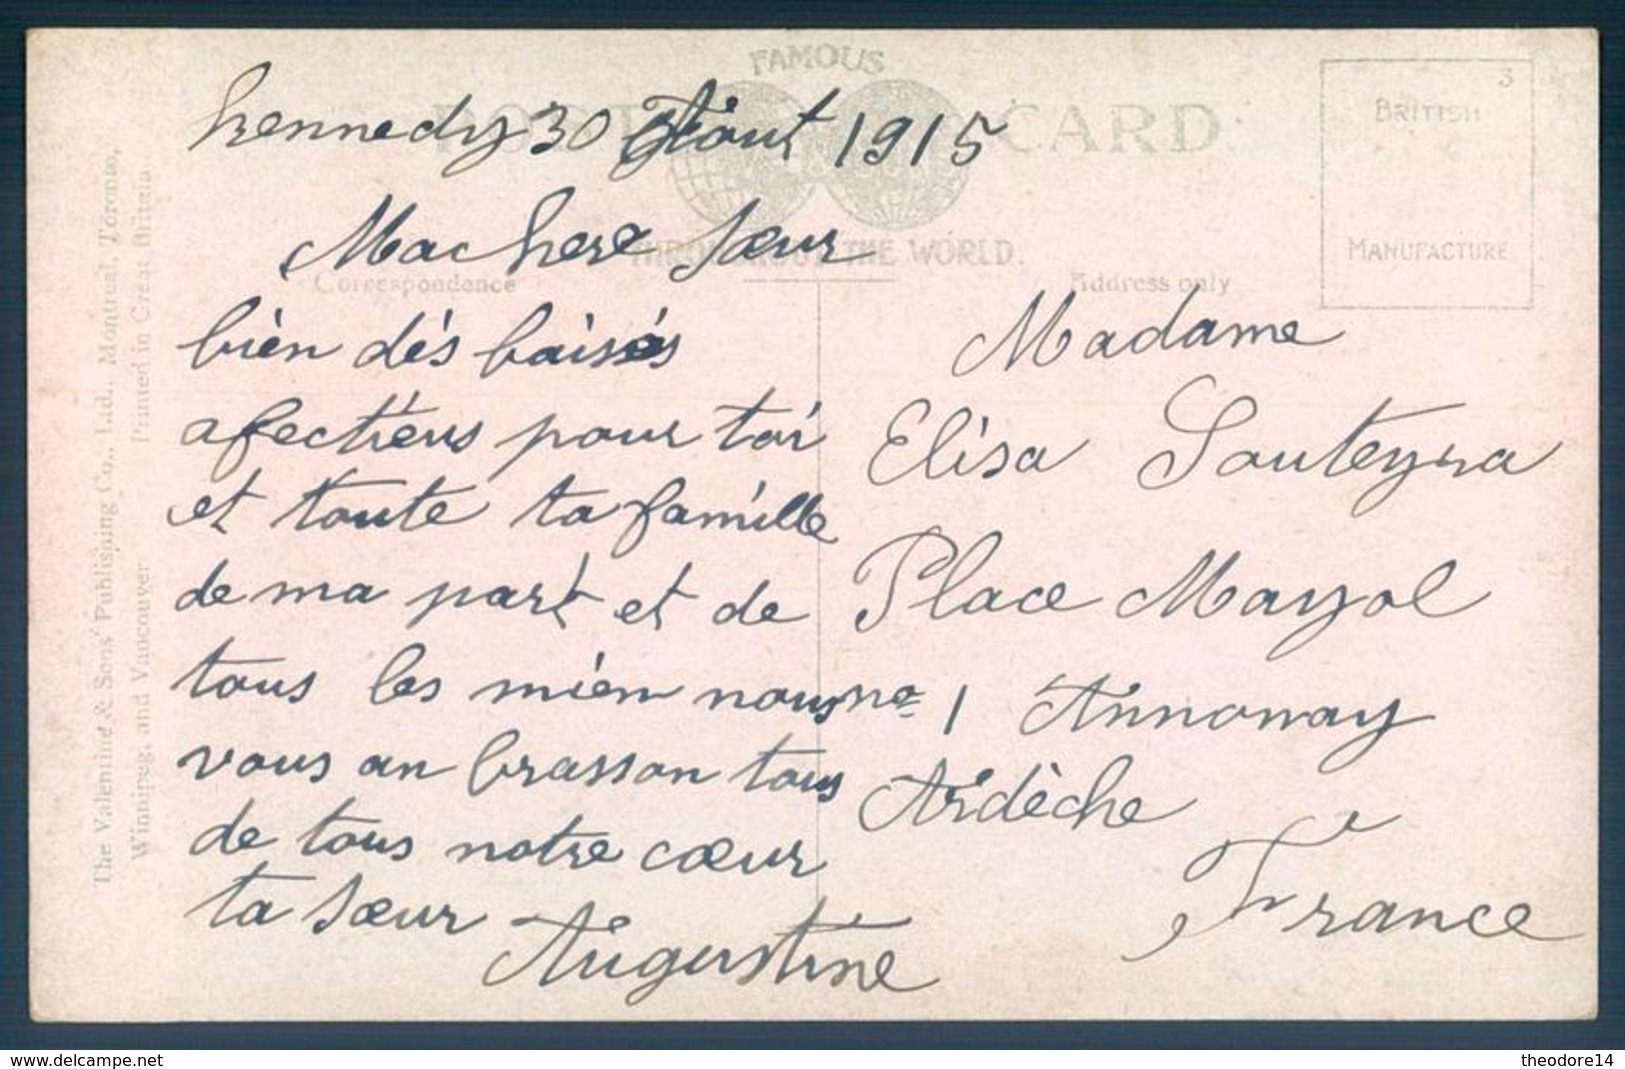 FAMOUS
POST CARD
THROUGHOUT THE WORLD.
Correspondence
Address only
BRITISH
MANUFACTURE
3
The Valentine & Sons' Publishing Co., Ltd., Montreal, Toronto,
Winnipeg, and Vancouver
Printed in Great Britain.
Kennedy 30 Aout 1915
Ma chere sœur
bien dés baisés
afectiéus pour toi
et toute ta famille
de ma part et de
tous les mien nous
vous an brasson tous
de tous notre cœur
ta sœur Augustine
Madame
Elisa Souteyra
Place Mayol
no 1 Annonay
Ardèche
France
www.delcampe.net
theodore14